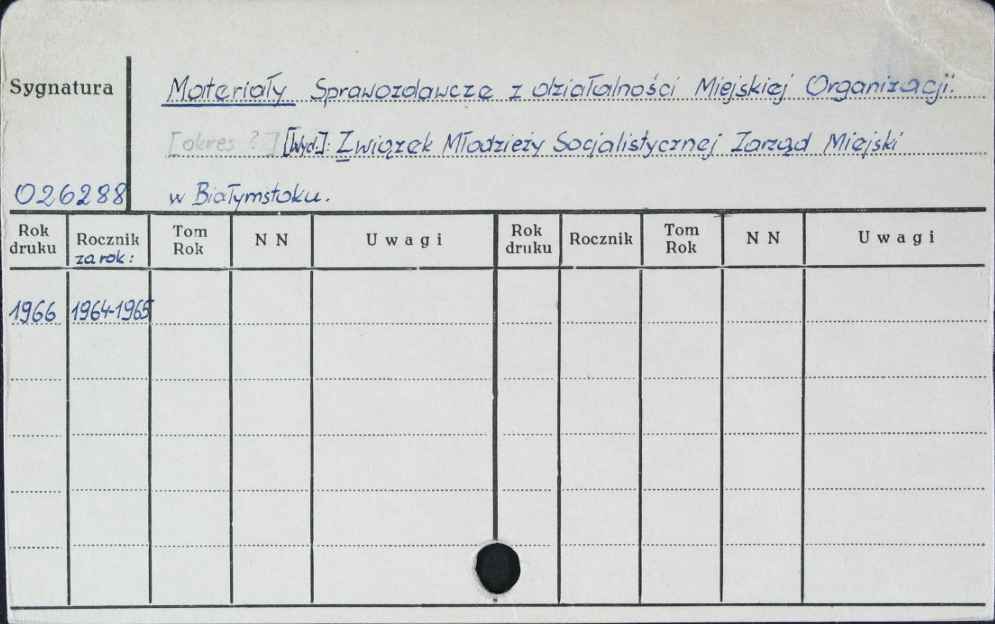 Sygnatura
Materiały Sprawozdawcze z działalności Miejskiej Organizacji.
[okres ?] [Wyd.]: Związek Młodzieży Socjalistycznej Zarząd Miejski
026288 w Białymstoku.
Rok druku Rocznik za rok: Tom Rok N N Uwagi Rok druku Rocznik Tom Rok N N Uwagi
1966 1964-1965